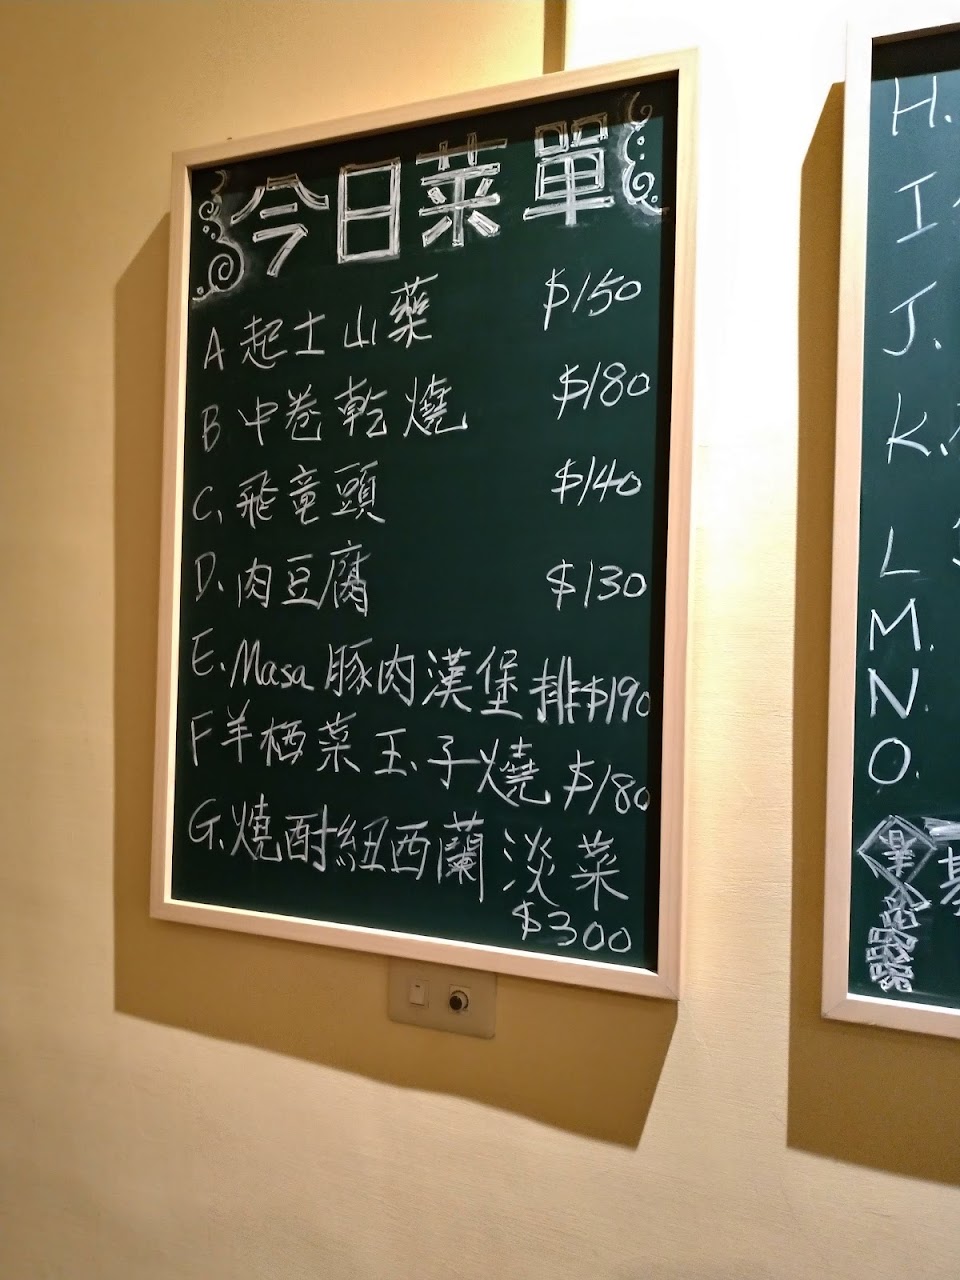 今日菜單
A 起士山藥 $150
B 中卷乾燒 $180
C. 飛竜頭 $140
D. 肉豆腐 $130
E. Masa 豚肉漢堡排 $190
F 羊栖菜玉子燒 $180
G. 燒酎紐西蘭淡菜
$300
H.
I
J.
K.
L
M.
N.
O.